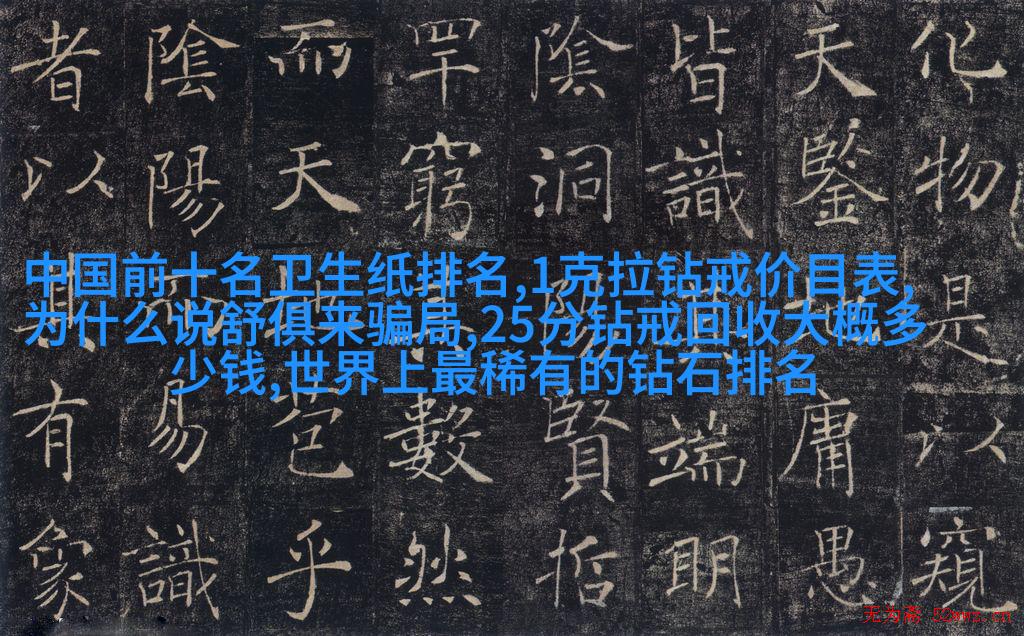 化物是以窺
天鑒庸愚
皆識端明
陰洞陽賢哲
罕窮數然
而天苞乎
陰陽易識
者以其有象
中国前十名卫生纸排名,1克拉钻戒价目表,
为什么说舒俱来骗局,25分钻戒回收大概多
少钱,世界上最稀有的钻石排名
无为斋 52wwz.cn